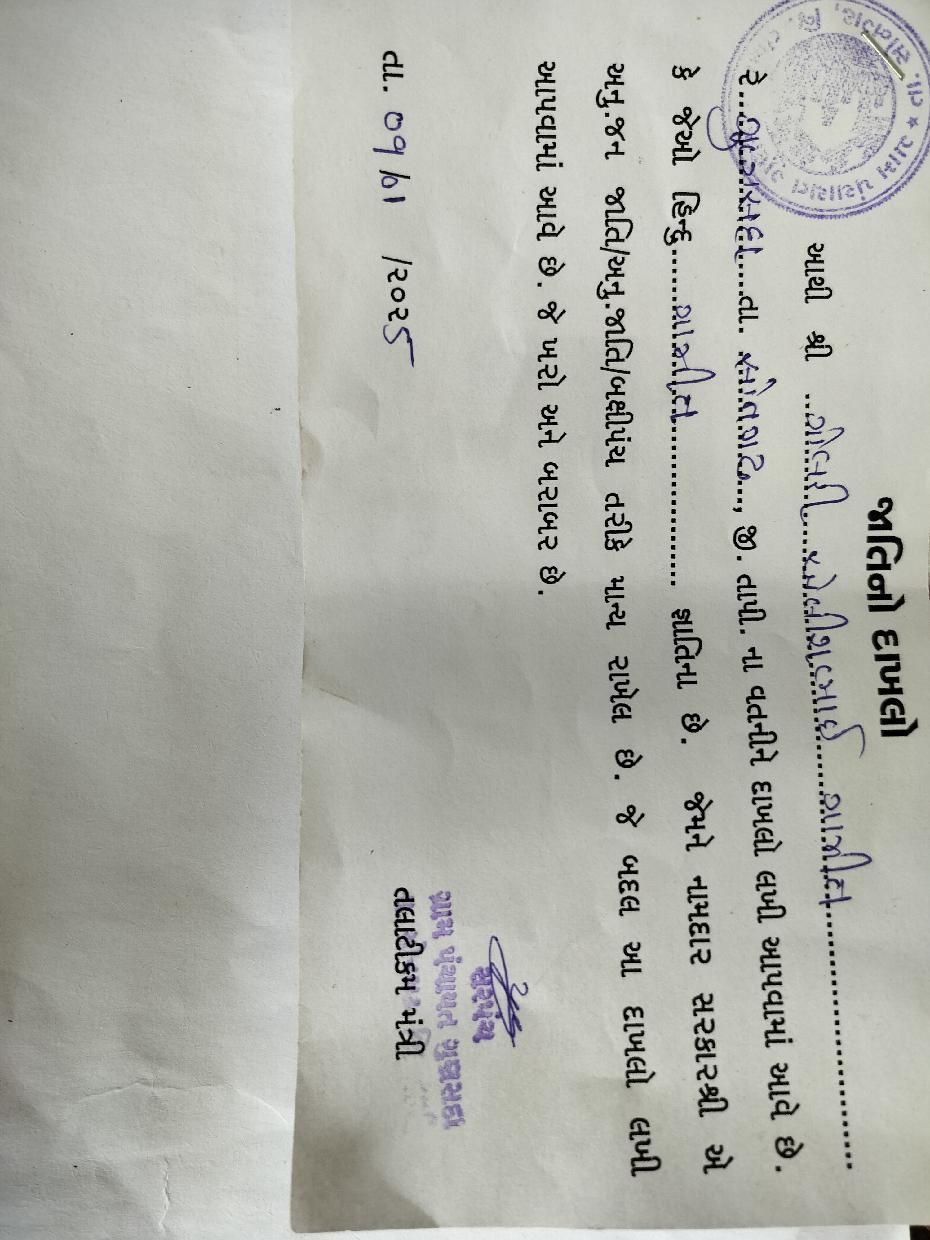 જાતિનો દાખલો
આથી શ્રી ................ ગામીત ................
રે.... ગુણસદા .... તા. સોનગઢ..., જી. તાપી. ના વતનીને દાખલો લખી આપવામાં આવે છે.
કે જેઓ હિન્દુ........ ગામીત ................ જ્ઞાતિના છે. જેમને નામદાર સરકારશ્રી એ
અનુ.જન જાતિ/અનુ.જાતિ/બક્ષીપંચ તરીકે માન્ય રાખેલ છે. જે બદલ આ દાખલો લખી
આપવામાં આવે છે. જે ખરો અને બરાબર છે.
તા. ૦૧/૦૧ /૨૦૨૫
સરપંચ
ગ્રામ પંચાયત ગુણસદા
તલાટીકમ મંત્રી
ગ્રામ પંચાયત
તા. સોનગઢ,